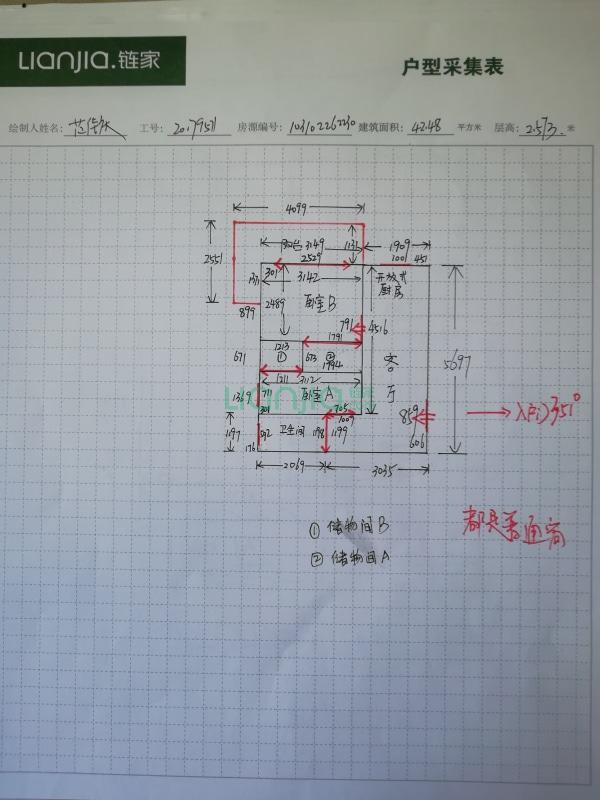 LIANJIA.链家
户型采集表
绘制人姓名: 工号: 20179511 房源编号: 103102262230 建筑面积: 42.48 平方米 层高: 2.573 米
4099
3149 1131 1909
2529 1001 451
301
2551
3142
开放式
厨房
2489 卧室B
899
791 4516
1791
1213
671 ① 673 ②
客
5697
1794
1211 3112
厅
卧室A
LIANJIA
1369 711
705
859 入户门351°
301 1009
1197 卫生间 1198 1199
606
176
2069 3035
① 储物间B
都是普通窗
② 储物间A